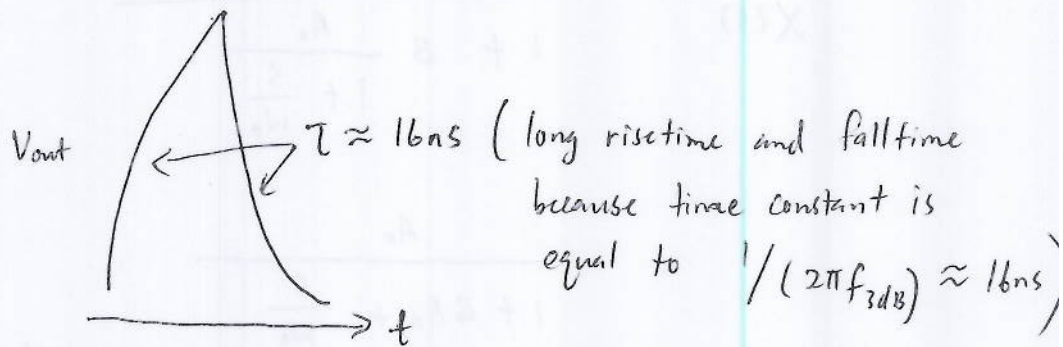 Vout
τ ≈ 16ns ( long risetime and falltime
because time constant is
equal to 1/(2πf3dB) ≈ 16ns )
t